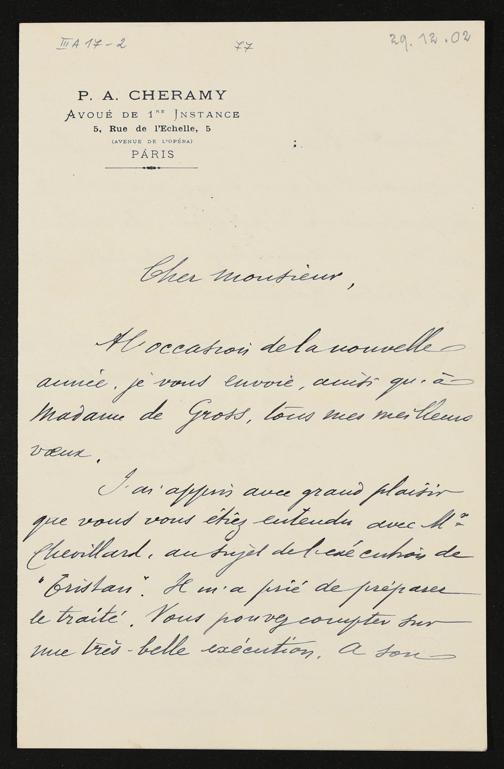 III A 17-2
77
29.12.02
P. A. CHERAMY
AVOUÉ DE 1RE INSTANCE
5, Rue de l'Echelle, 5
(AVENUE DE L'OPÉRA)
PARIS
Cher monsieur,
A l'occasion de la nouvelle
année, je vous envoie, ainsi qu'à
Madame de Gross, tous mes meilleurs
vœux.
J'ai appris avec grand plaisir
que vous vous étiez entendu avec Mr
Chevillard, au sujet de l'exécution de
"Tristan". Il m'a prié de préparer
le traité. Vous pouvez compter sur
une très-belle exécution. A son